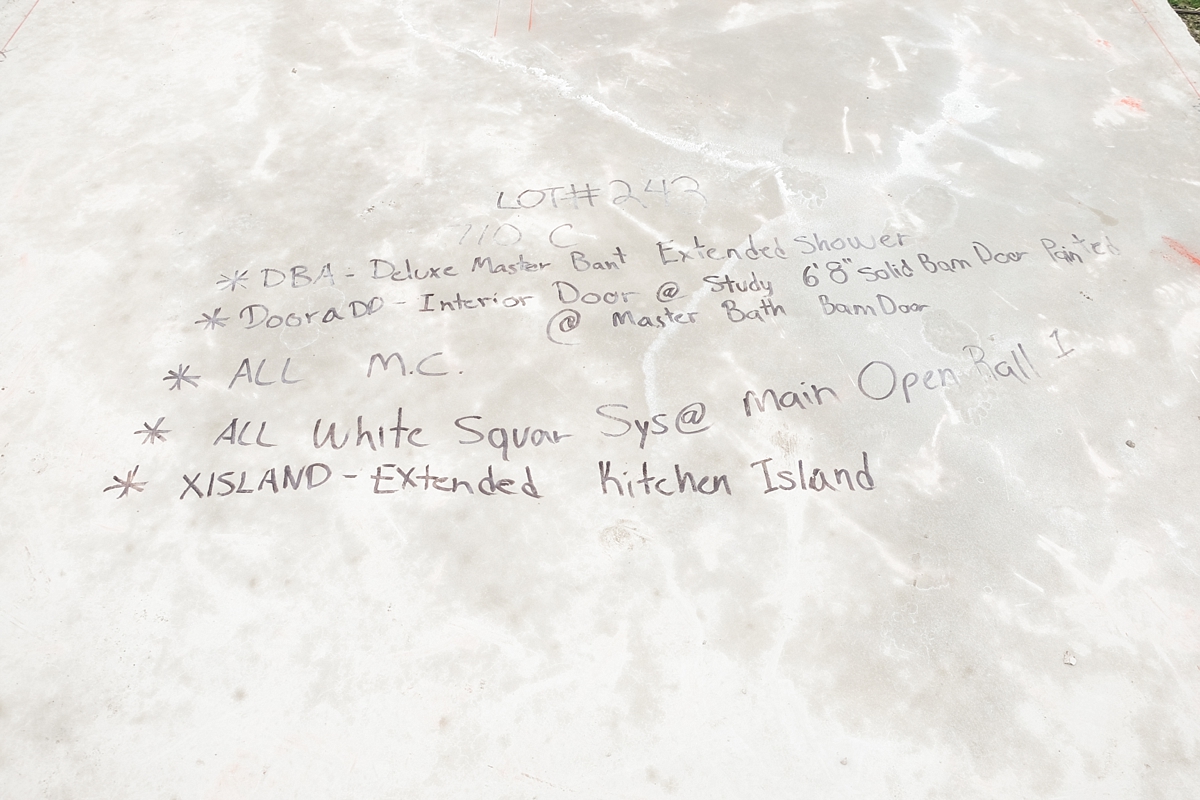 LOT# 242
710 C
* DBA - Deluxe Master Bant Extended Shower
* DooraDD - Interior Door @ Study 6'8" Solid Barn Door Painted
@ Master Bath Barn Door
* ALL M.C.
* ALL White Squar Sys @ Main Open Rall 1
* XISLAND - Extended Kitchen Island